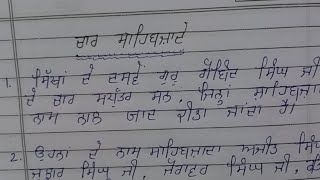 ਚਾਰ ਸਾਹਿਬਜ਼ਾਦੇ
1. ਸਿੱਖਾਂ ਦੇ ਦਸਵੇਂ ਗੁਰੂ ਗੋਬਿੰਦ ਸਿੰਘ ਜੀ
ਦੇ ਚਾਰ ਸਪੁੱਤਰ ਸਨ, ਜਿਨ੍ਹਾਂ ਸਾਹਿਬਜ਼ਾ
ਨਾਮ ਨਾਲ ਯਾਦ ਕੀਤਾ ਜਾਂਦਾ ਹੈ।
2. ਉਹਨਾਂ ਦੇ ਨਾਮ ਸਾਹਿਬਜ਼ਾਦਾ ਅਜੀਤ ਸਿੰਘ
ਜੁਝਾਰ ਸਿੰਘ ਜੀ, ਜ਼ੋਰਾਵਰ ਸਿੰਘ ਜੀ,